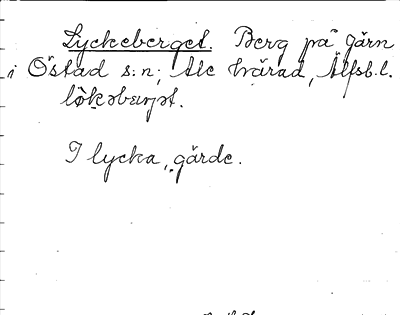 Lyckeberget. Berg på Gärn
i Östad s:n, Ale härad, Älfsb.l.
I lycka, gärde.